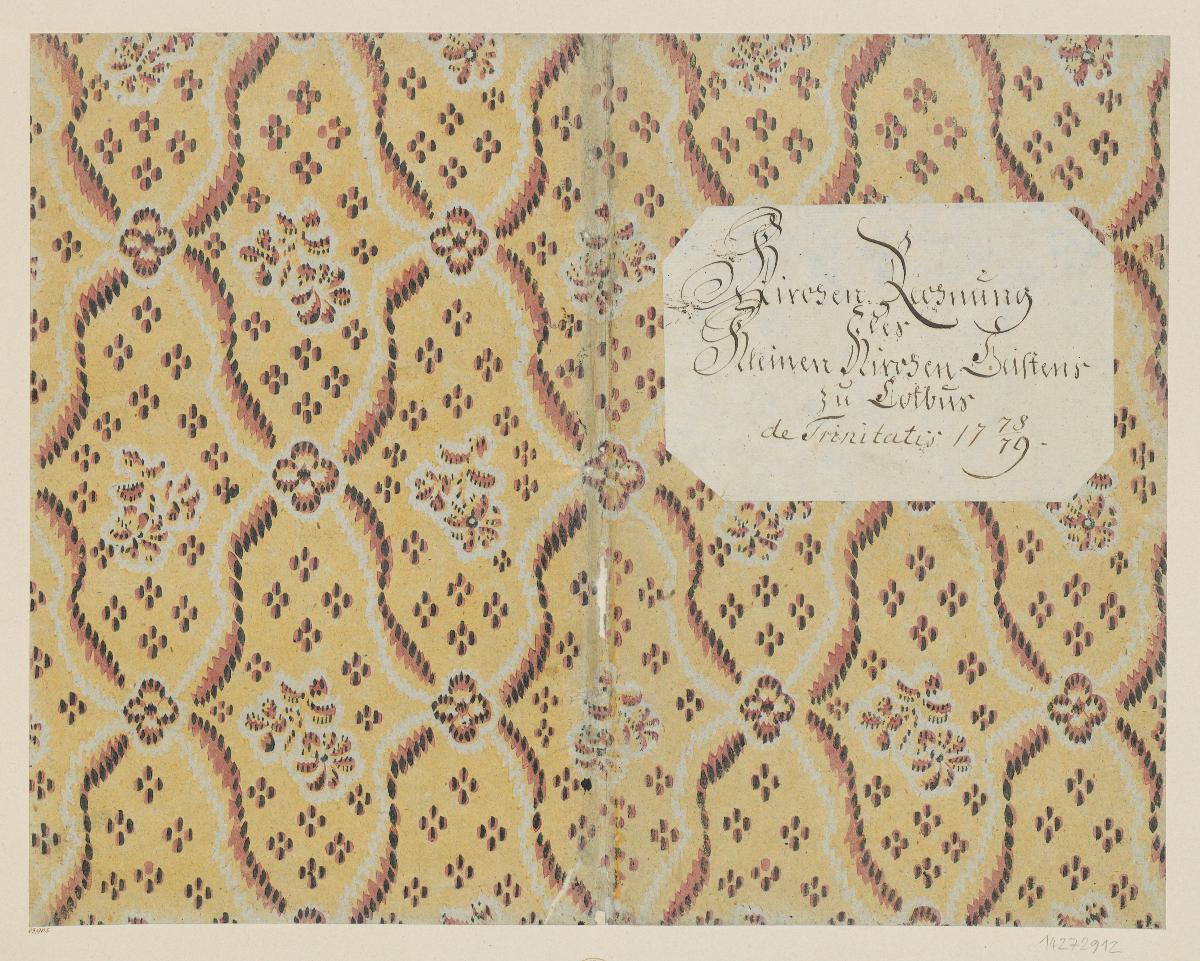 Kirchen Rechnung
des
Kleinen Kirchen Kastens
zu Cotbus
de Trinitatis 17 78/79.
14272912